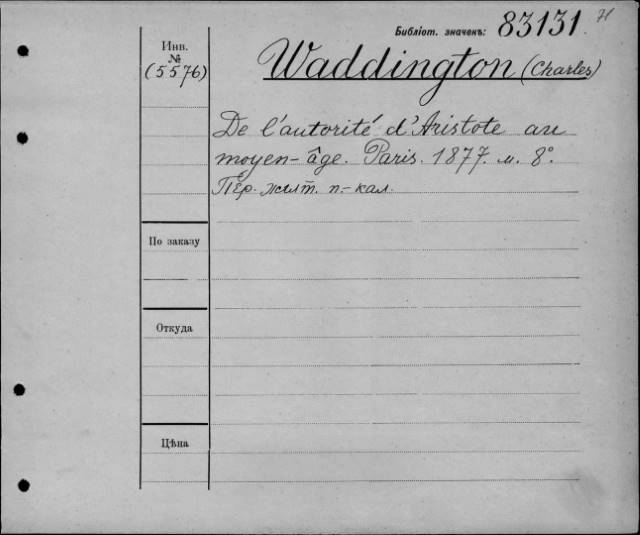 Библіот. значекъ: 83131. 71
Инв.
№
(5576)
Waddington (Charles)
De l'autorité d'Aristote au
moyen-âge. Paris. 1877. м. 8º.
Пер. желт. п.-кал.
По заказу
Откуда
Цѣна